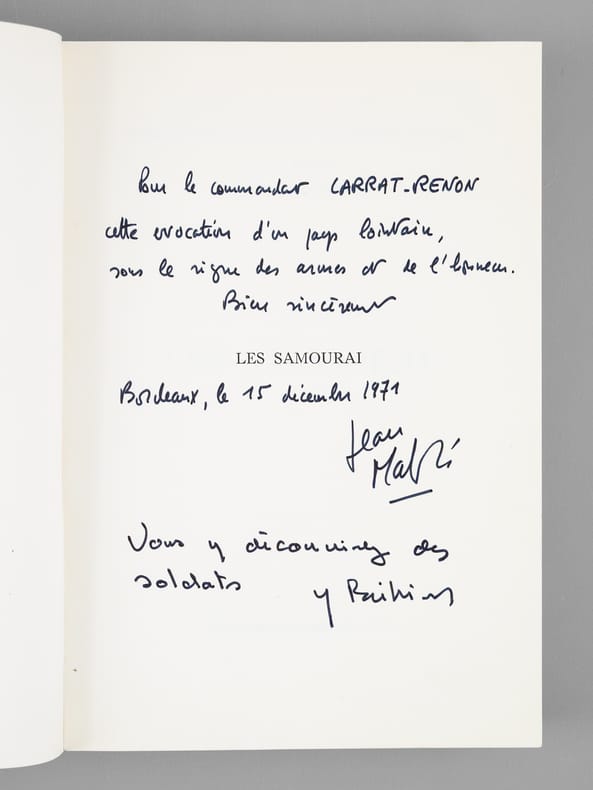 Pour le commandant CARRAT-RENON
cette evocation d'un pays lointain,
sous le signe des armes et de l'honneur.
Bien sincèrement
LES SAMOURAI
Bordeaux, le 15 décembre 1971
Jean
Mabire
Vous y découvrirez des
soldats
Y